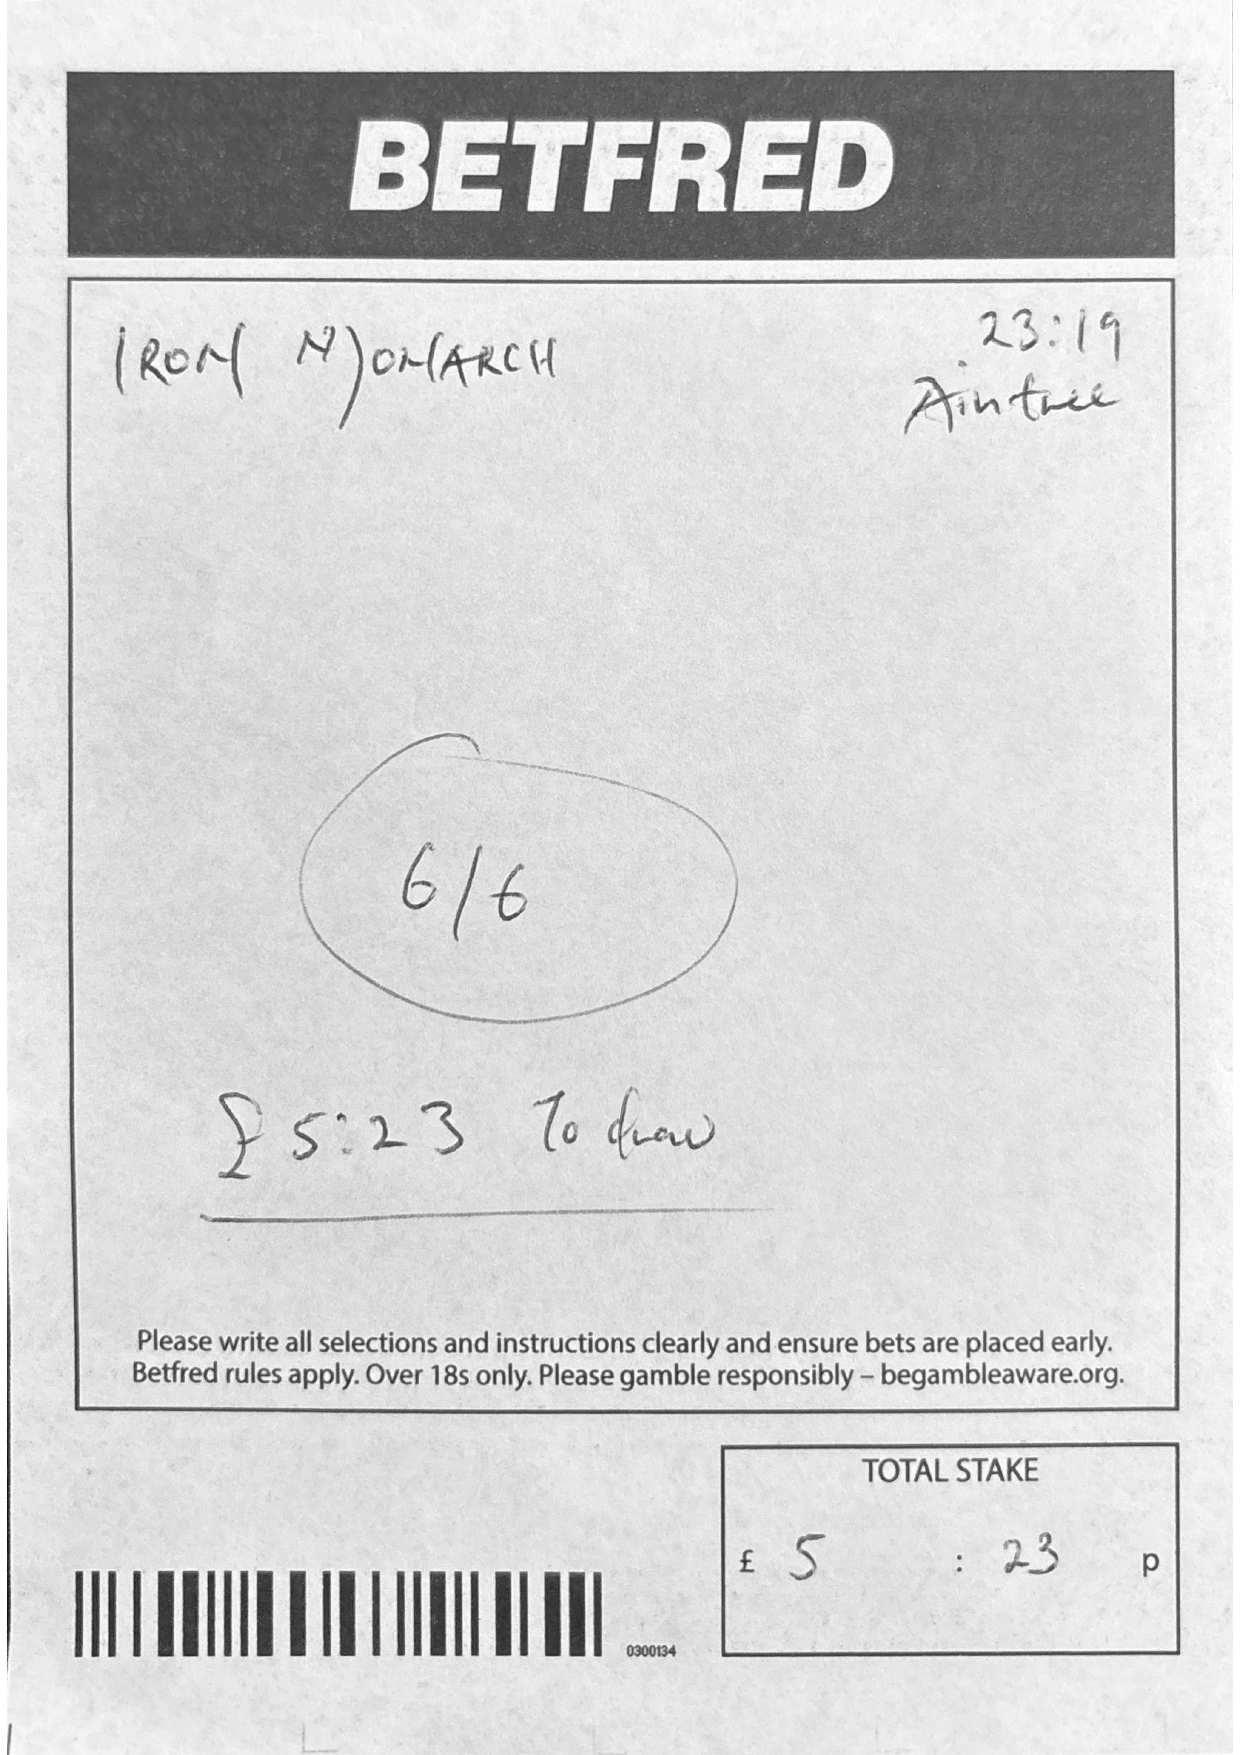 BETFRED
IRON MONARCH
23:19
Aintree
6/6
£5:23 To draw
Please write all selections and instructions clearly and ensure bets are placed early.
Betfred rules apply. Over 18s only. Please gamble responsibly – begambleaware.org.
TOTAL STAKE
£ 5 : 23 p
0300134